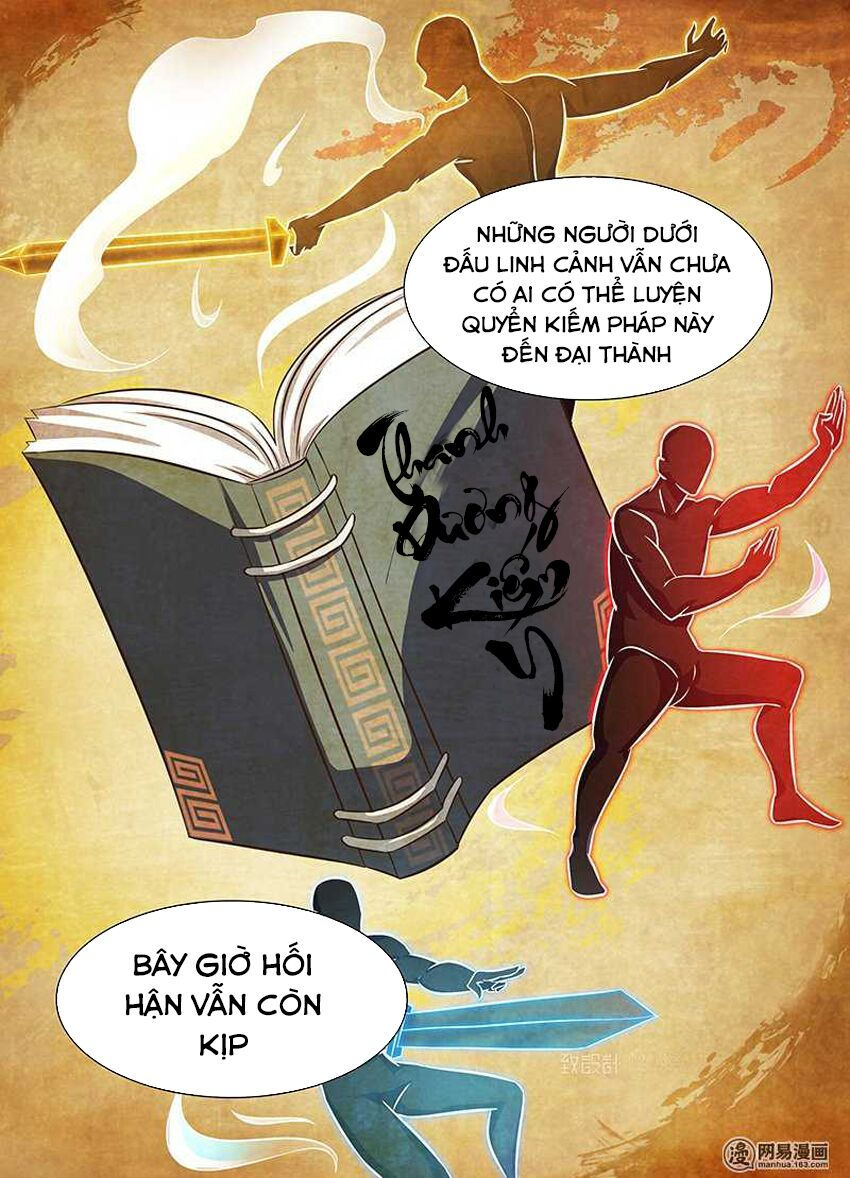 NHỮNG NGƯỜI DƯỚI
ĐẤU LINH CẢNH VẪN CHƯA
CÓ AI CÓ THỂ LUYỆN
QUYỂN KIẾM PHÁP NÀY
ĐẾN ĐẠI THÀNH
Thanh
Dương
Kiếm
Ý
BÂY GIỜ HỐI
HẬN VẪN CÒN
KỊP
网易漫画
manhua.163.com